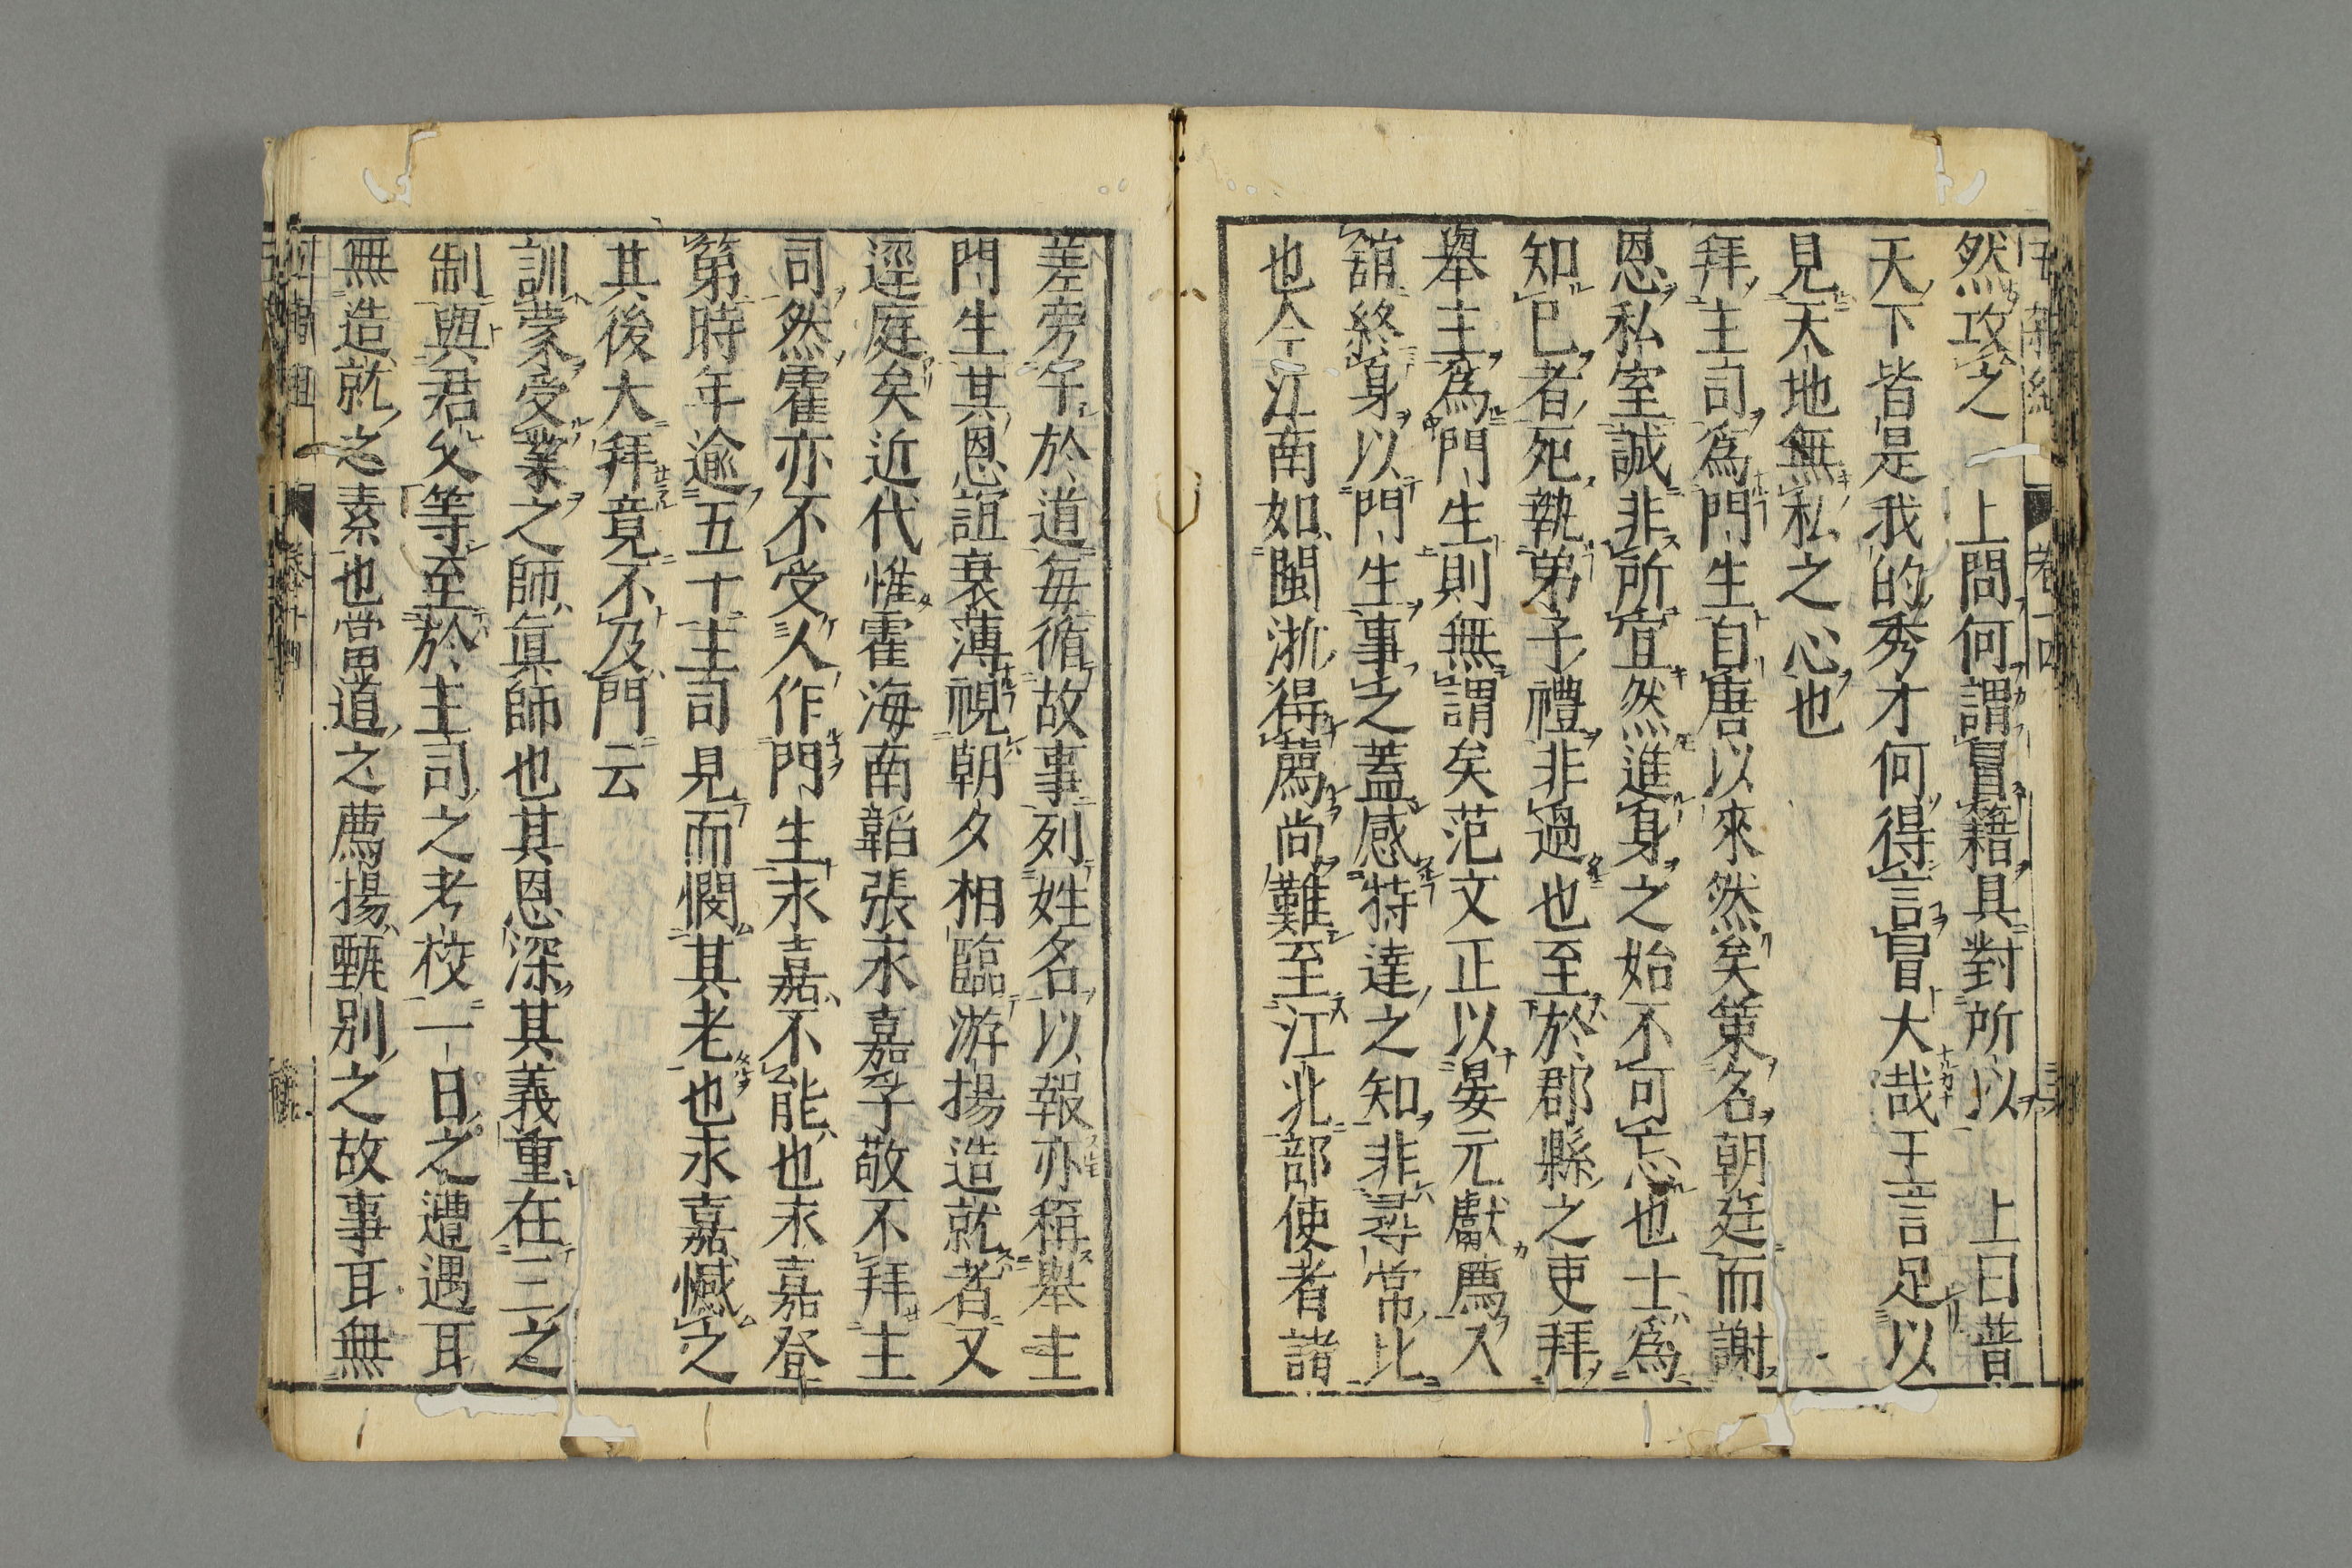 然攻之　上問何謂冒籍具對所以　上曰普
天下皆是我的秀才何得言冒大哉王言足以
見天地無私之心也
拜主司爲門生自唐以來然矣策名朝廷而謝
恩私室誠非所宜然進身之始不可忘也士爲
知已者死執弟子禮非過也至於郡縣之吏拜
舉主爲門生則無謂矣范文正以晏元獻薦入
舘終身以門生事之蓋感特達之知非尋常比
也今江南如閩浙得薦尚難至江北部使者諸
差旁午於道每循故事列姓名以報亦稱舉主
門生其恩誼衰薄視朝夕相臨游揚造就者又
逕庭矣近代惟霍海南韜張永嘉孚敬不拜主
司然霍亦不受人作門生永嘉不能也永嘉登
第時年逾五十主司見而憫其老也永嘉憾之
其後大拜竟不及門云
訓蒙受業之師眞師也其恩深其義重在三之
制與君父等至於主司之考校一日之遭遇耳
無造就之素也當道之薦揚甄別之故事耳無